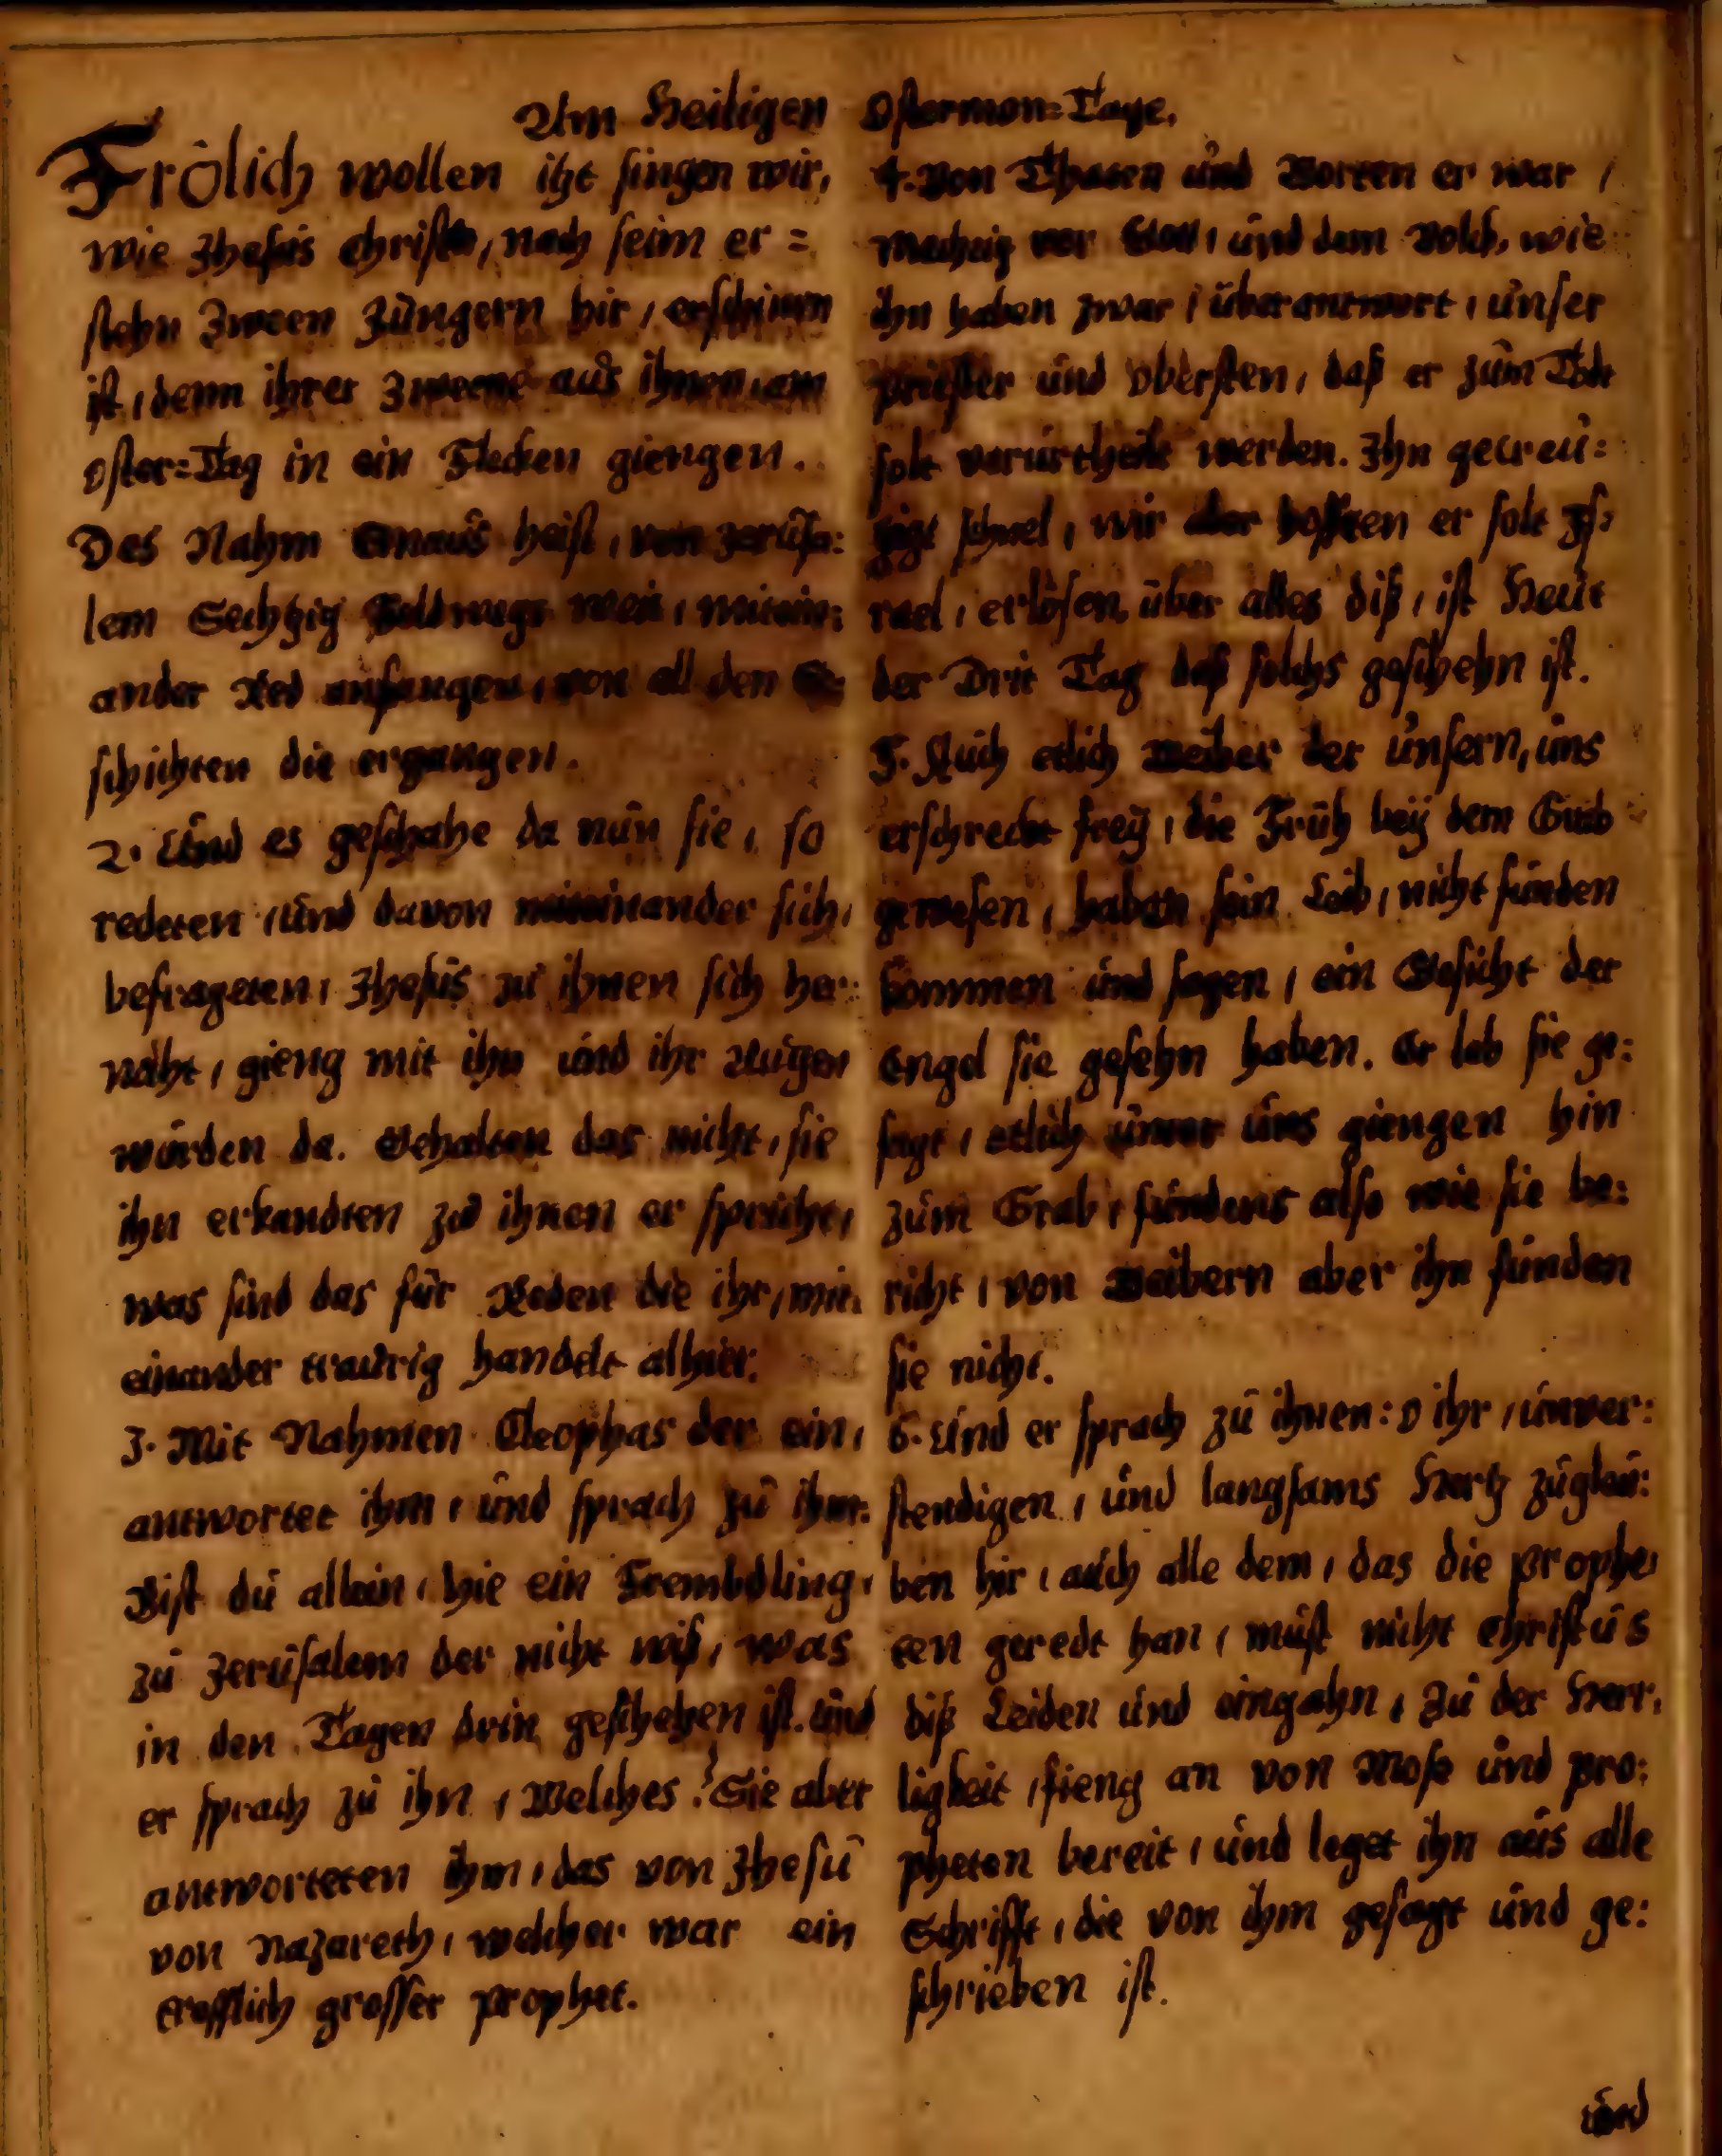 Am Heiligen Ostermon=Tage.
Frölich wollen itzt singen wir,
wie Jhesus Christus, nach seim er=
stehn Zween Jüngern hir, erschinen
ist, denn ihrer Zweene aus ihnen, am
Oster=Tag in ein Flecken giengen.
Des Nahm Emaus heist, von Jerusa:
lem Sechtzig Feldwegs weit, mitein:
ander Red anfangen, von all den Ge
schichten die ergangen.
2. Und es geschahe da nun sie, so
redeten, und davon miteinander sich,
befrageten, Jhesus zu ihnen sich her:
naht, gieng mit ihn und ihr Augen
wurden da. Gehalten das nicht, sie
ihn erkandten zu ihnen er spricht,
was sind das für Reden die ihr, mit
einander traurig handelt alhier:
3. Mit Nahmen Cleophas der ein,
antwortet ihm, und sprach zu ihm:
Bist du allein, hie ein Frembdling,
zu Jerusalem der nicht wiß, was
in den Tagen drin geschehen ist. und
er sprach zu ihn, Welches? Sie aber
antworteten ihm, das von Jhesu
von Nazareth, welcher war ein
trefflich grosser Prophet.
4. Von Thaten und Worten er war,
Mechtig vor Gott, und dem Volck, wie
ihn haben zwar, überantwort, unser
Priester und Obersten, daß er zum Tode
solt verurtheilt werden. Ihn gecreu:
zigt schnel, wir aber hofften er solt Is,
rael, erlösen, über alles diß, ist Heut
der Drit Tag daß solchs geschehn ist.
5. Auch etlich Weiber der unsern, uns
erschreckt frey, die Früh bey dem Grab
gewesen, haben sein Leib, nicht funden
kommen und sagen, ein Gesicht der
Engel sie gesehn haben. Er leb sie ge:
sagt, etlich unter uns giengen hin
zum Grab, fundens also wie sie be:
richt, von Weibern aber ihn funden
sie nicht.
6. Und er sprach zu ihnen: O ihr, unver:
stendigen, und langsams Hertz zuglau:
ben hir, auch alle dem, das die Prophe,
ten geredt han, must nicht Christus
diß Leiden und eingahn, Zu der Herr,
ligkeit, fieng an von Mose und Pro:
pheten bereit, und leget ihn aus alle
Schrifft, die von ihm gesagt und ge:
schrieben ist.
und